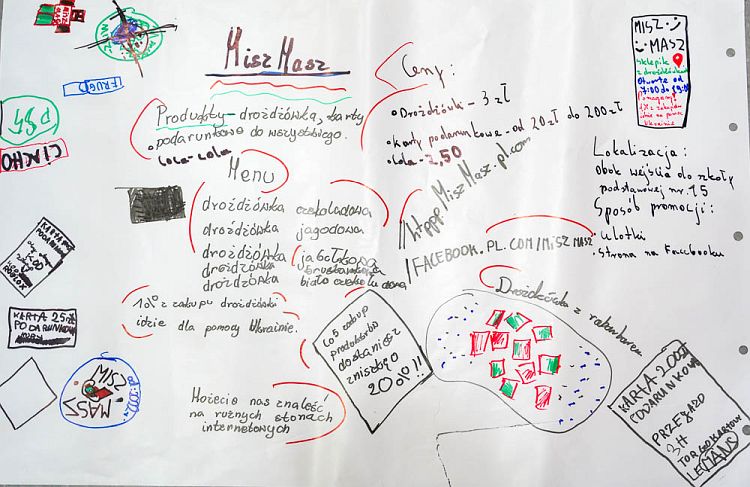 MiszMasz
Produkty-drożdżówka, karty
podaruntowe do wszystkiego.
cola-cola
Menu
drożdżówka czekoladowa
drożdżówka jagodowa
drożdżówka jabłkowa
drożdżówka truskawkowa
drożdżówka biało czekoladowa
10% z zakupu drożdżówki
idzie dla pomocy Ukrainie.
Możecie nas znaleść
na różnych stonach
internetowych
Ceny:
Drożdżówki - 3 zł
karty podarunkowe - od 20 zł do 200 zł
Cola - 2,50
MiszMasz.pl.com
/FACEBOOK.PL.COM/MISZ MASZ
Co 5 zakup
produktów
dostaniesz
zniszkę
20%!!
Drożdżówka z
MISZ
MASZ
Sklepik
z drożdżówkami
Otwarte od
7:00 do
Pomagamy
Ukrainie
Lokalizacja:
Obok wejścia do szkoły
podstawowej nr. 15
Sposób promocji:
ulotki
Strona na Facebooku
KARTA 200zł
PODARUNKOWA
PRZEJAZD
3H
TOR GOKARTOWY
LE MANS
FRUGO
PSŚ
CIACHO
KARTA
PODARUNKOWA
ROBLOX
KARTA 25zł
PODARUNKOWA
MISZ
MASZ